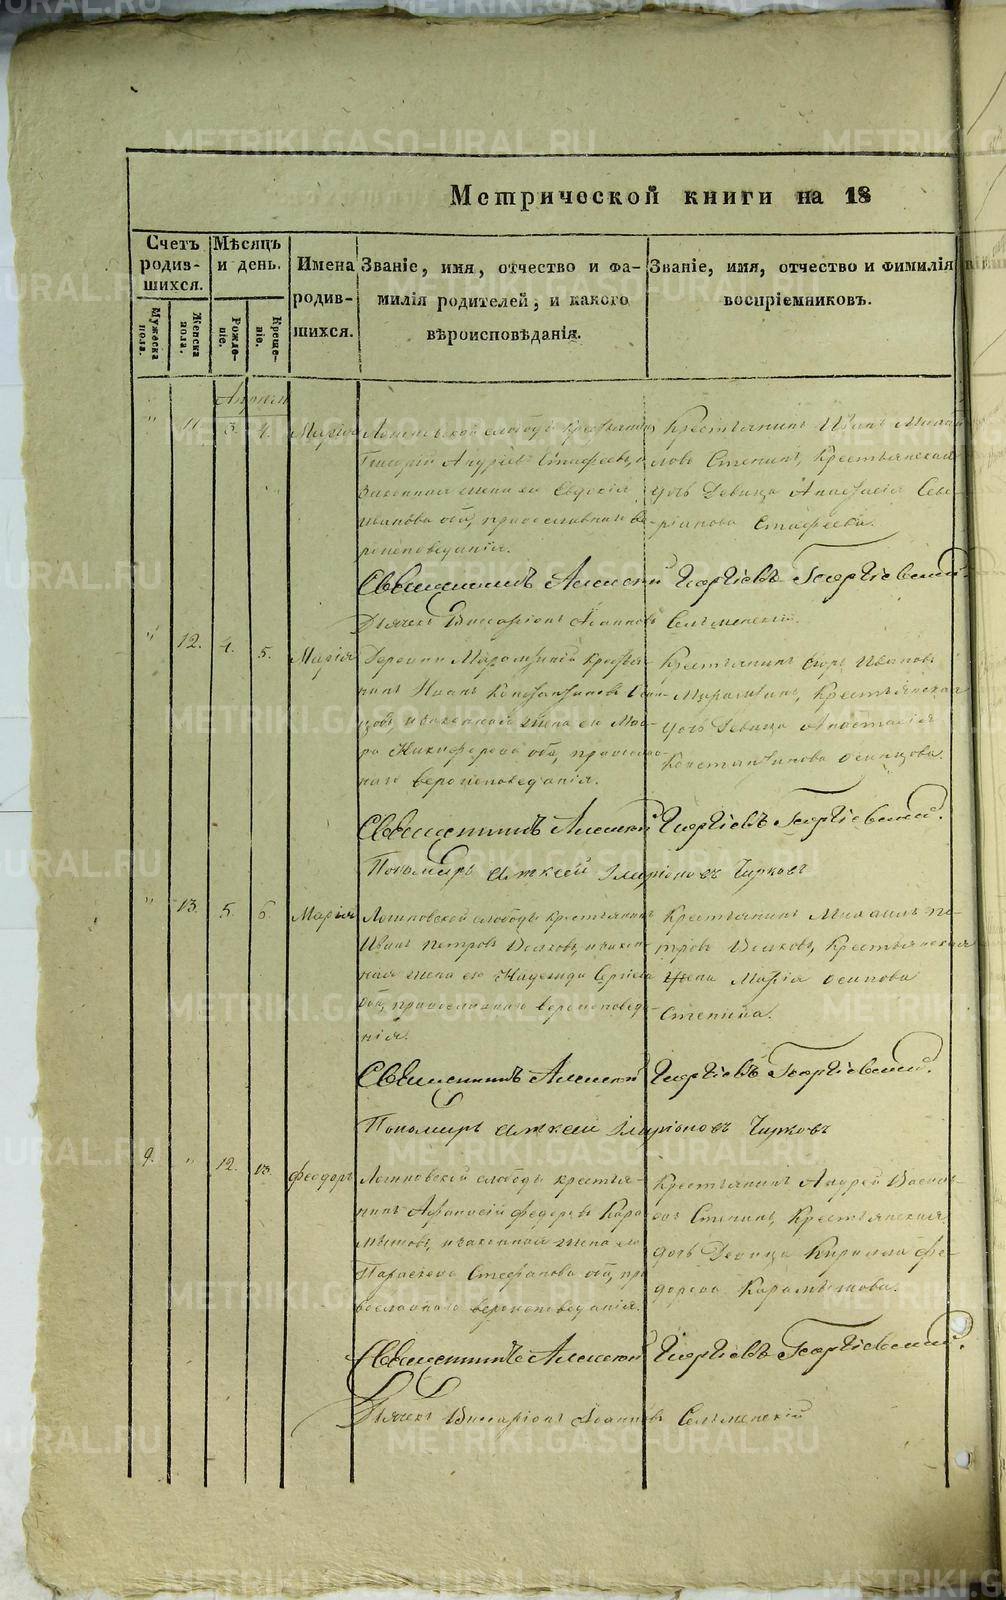 Метрической книги на 18
Счетъ родив-шихся.
Мужеска пола.
Женска пола.
Мѣсяцъ и день.
Рожде-ніе.
Креще-ніе.
Имена родив-шихся.
Званіе, имя, отчество и фа-
милія родителей, и какого
вѣроисповѣданія.
Званіе, имя, отчество и фимилія
воспріемниковъ.
Апрѣля
" 11 3. 4. Марія
слободы крестьянинъ
Андреевъ Стафеевъ, и
законная жена его Евдокія
Иванова оба православнаго ве-
роисповеданія.
Крестьянинъ Иванъ Михай
ловъ Степинъ, Крестьянская
дочь Девица Анастасія
Стафеева.
Священникъ Алексей Георгіевъ Георгіевскій.
Дьячекъ Виссаріонъ Іоанновъ
" 12. 4. 5. Марія
Деревни крестья-
нинъ Иванъ Константиновъ Осин-
цовъ, и законная жена его
Никифорова оба православ-
наго вероисповеданія.
Крестьянинъ Ивановъ
Крестьянская
дочь Девица Анастасія
Константинова Осинцова.
Священникъ Алексей Георгіевъ Георгіевскій.
Пономарь Алексей Иларіоновъ Чирковъ
" 13. 5. 6. Марія
Логиновской слободы крестьянинъ
Иванъ Петровъ и закон-
ная жена его Надежда Сергіева
оба православнаго вероисповеда-
нія.
Крестьянинъ Михаилъ Пе-
тровъ Крестьянская
жена Марія Осипова
Степина.
Священникъ Алексей Георгіевъ Георгіевскій.
Пономарь Алексей Иларіоновъ Чирковъ
9. " 12. 13. Феодоръ
Логиновской слободы крестья-
нинъ Афанасій Федоровъ Кара
мышовъ, и законная жена его
Параскева Стефанова оба пра
вославнаго вероисповеданія.
Крестьянинъ Андрей
Степинъ, Крестьянская
дочь Девица Кирилла Фе-
дорова Карамышова.
Священникъ Алексей Георгіевъ Георгіевскій.
Дьячекъ Виссаріонъ Іоанновъ
METRIKI.GASO-URAL.RU